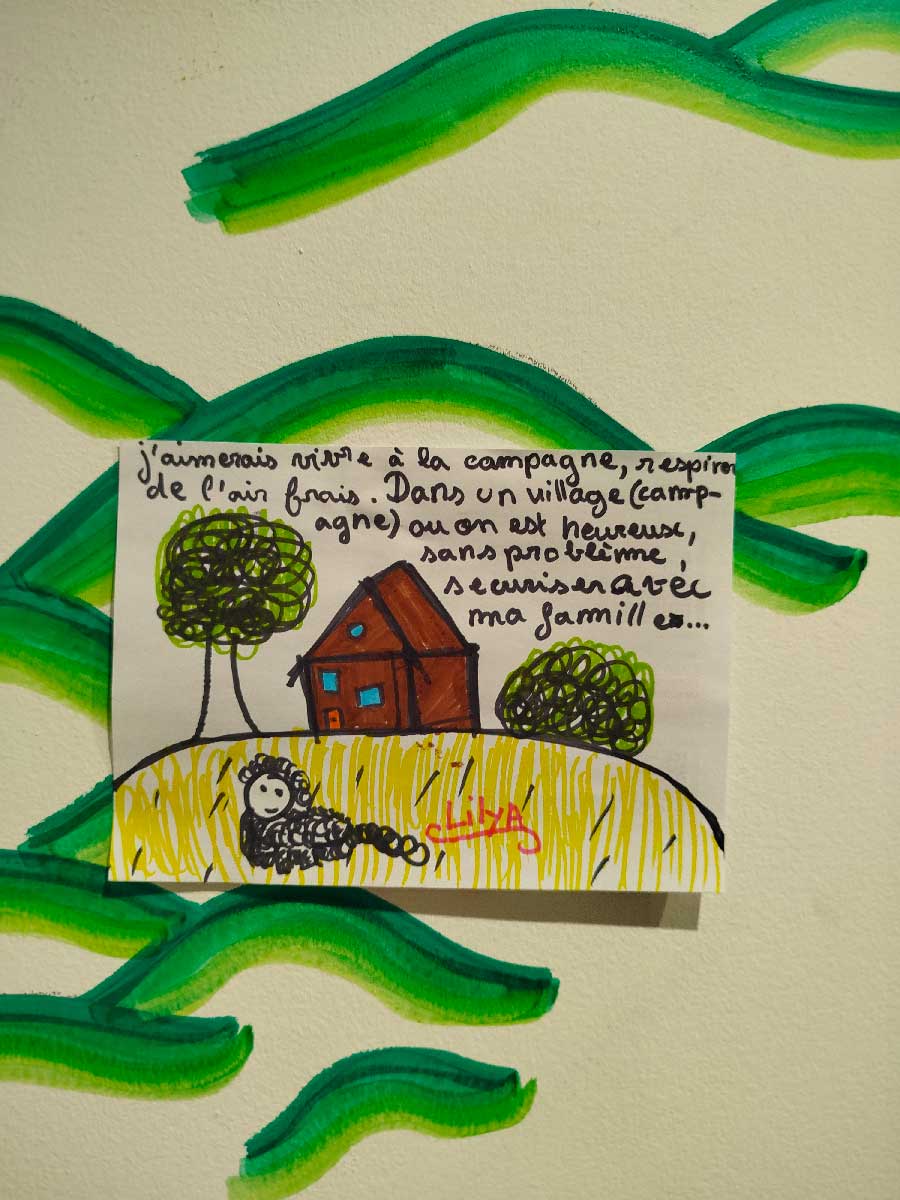 j'aimerais vivre à la campagne, respirer
de l'air frais. Dans un village (camp-
agne) ou on est heureux,
sans problème,
securiser avec
ma famille...
LilyA